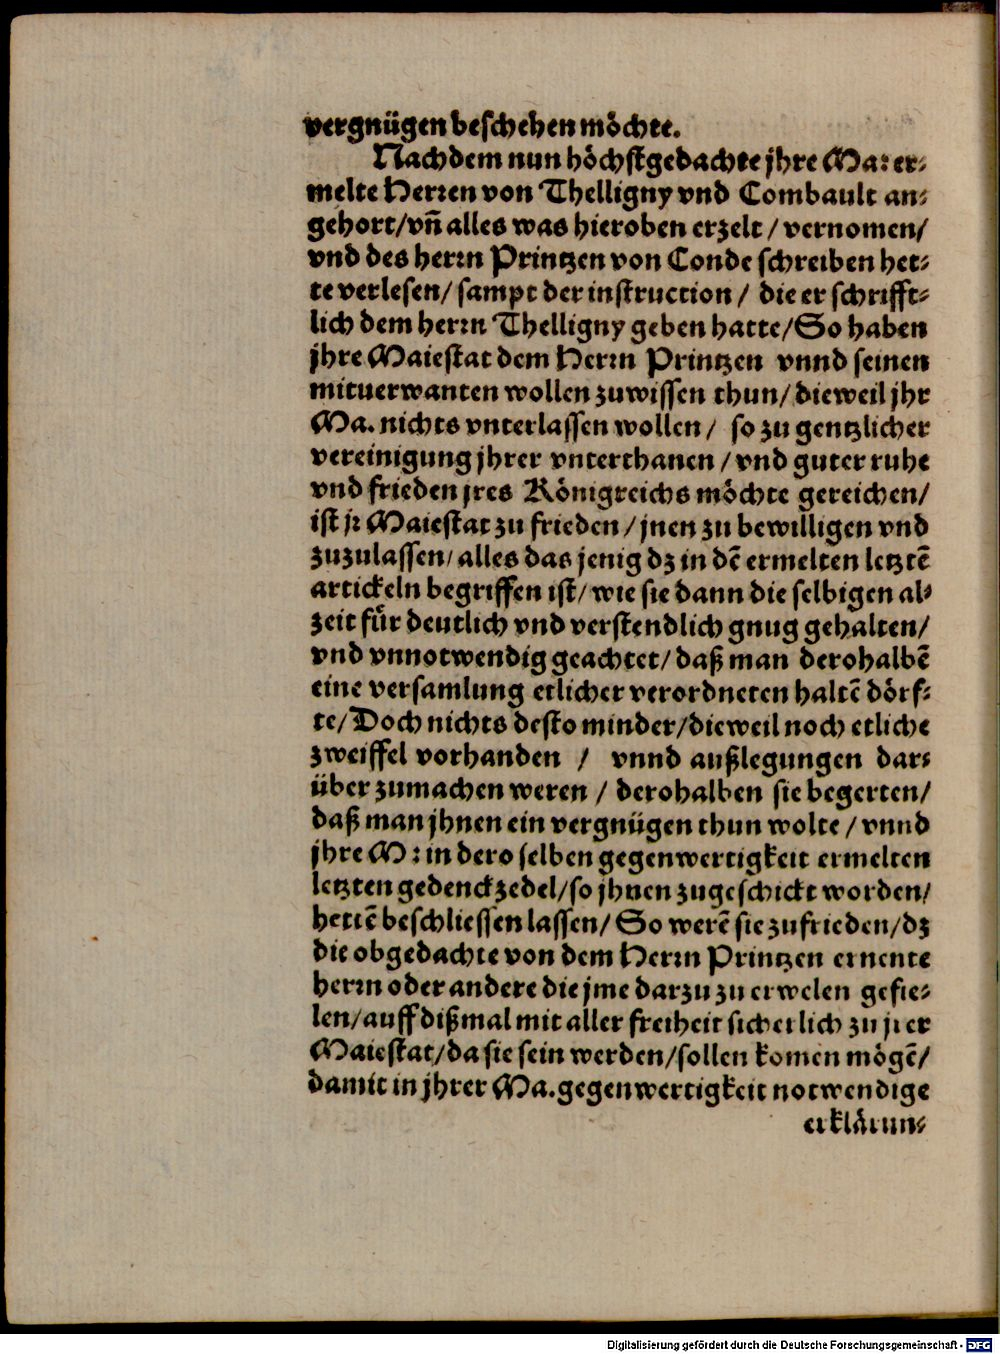 vergnügen beschehen möchte.
Nachdem nun höchstgedachte jhre Ma: er-
melte Herren von Thelligny vnd Combault an-
gehort/vñ alles was hieroben erzelt / vernomen/
vnd des herrn Printzen von Conde schreiben het-
te verlesen/ sampt der instruction / die er schrifft-
lich dem herrn Thelligny geben hatte/So haben
jhre Maiestat dem Herrn Printzen vnnd seinen
mituerwanten wollen zuwissen thun/ dieweil jhr
Ma. nichts vnterlassen wollen / so zu gentzlicher
vereinigung jhrer vnterthanen / vnd guter ruhe
vnd frieden jres Königreichs möchte gereichen/
ist jr Maiestat zu frieden / jnen zu bewilligen vnd
zuzulassen/ alles das jenig dz in dē ermelten letztē
artickeln begriffen ist/ wie sie dann die selbigen al-
zeit für deutlich vnd verstendlich gnug gehalten/
vnd vnnotwendig geachtet/ daß man derohalbē
eine versamlung etlicher verordneten haltē dörf-
te/Doch nichts desto minder/dieweil noch etliche
zweiffel vorhanden / vnnd außlegungen dar-
über zumachen weren / derohalben sie begerten/
daß man jhnen ein vergnügen thun wolte / vnnd
jhre M: in dero selben gegenwertigkeit ermelten
letzten gedenckzedel/so jhnen zugeschickt worden/
hettē beschliessen lassen/ So werē sie zufrieden/dz
die obgedachte von dem Herrn Printzen ernente
herrn oder andere die jme darzu zu erwelen gefie-
len/auff dißmal mit aller freiheit sicherlich zu jrer
Maiestat/da sie sein werden/sollen komen mögē/
damit in jhrer Ma.gegenwertigkeit notwendige
erklärun-
Digitalisierung gefördert durch die Deutsche Forschungsgemeinschaft - DFG